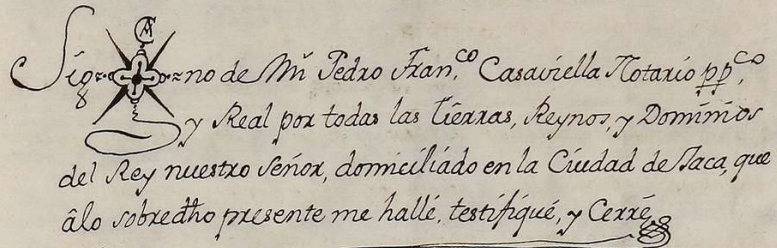 Sig=no de Mi Pedro Fran.co Casaviella Notario pp.co,
y Real por todas las Tierras, Reynos, y Dominios
del Rey nuestro Señor, domiciliado en la Ciudad de Jaca, que
âlo sobredho presente me hallé, testifiqué, y Cerré